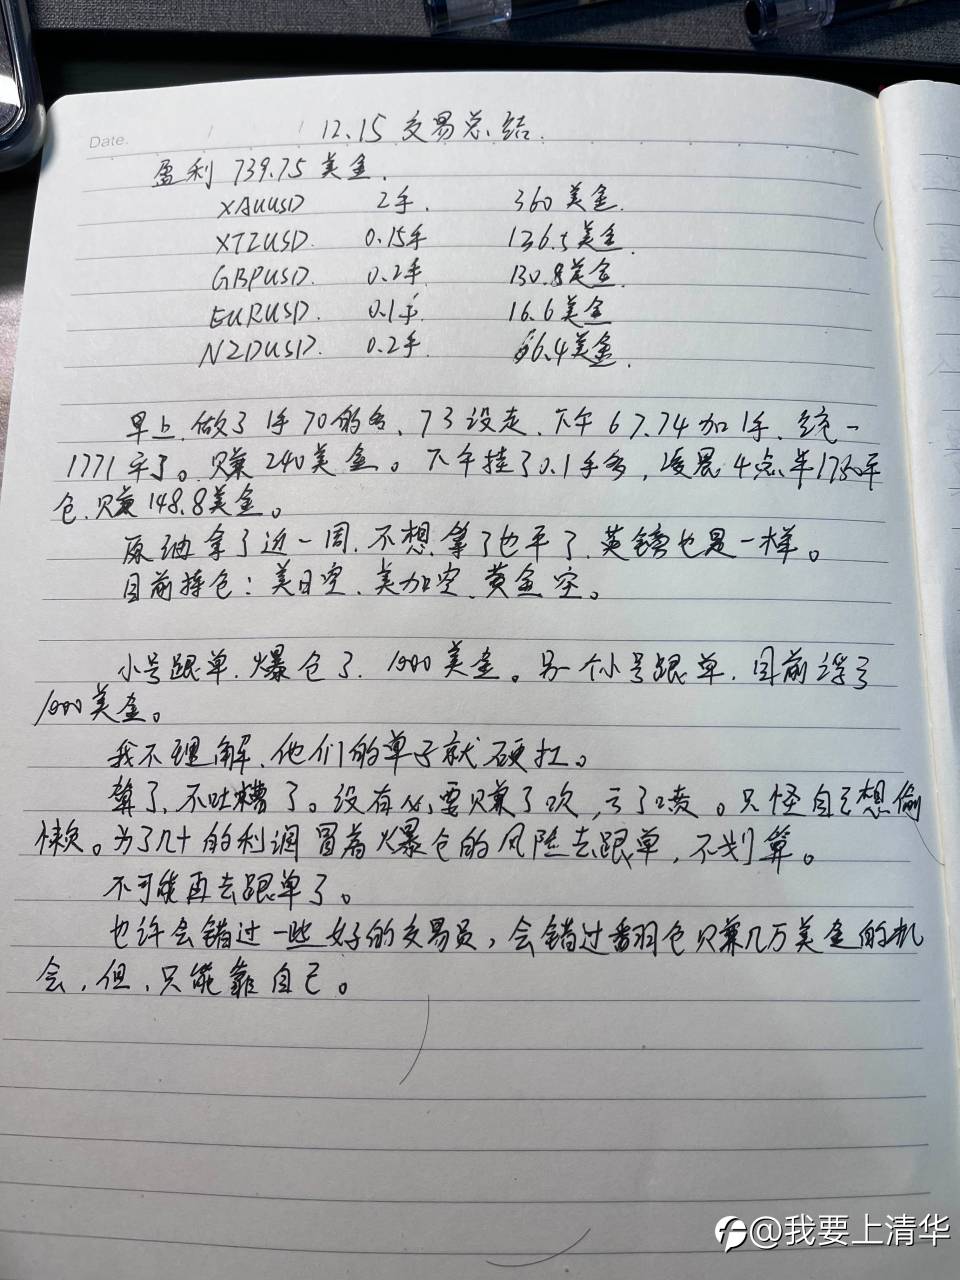 Date.
12.15 交易总结.
盈利 739.75 美金.
XAUUSD 2手. 360 美金.
XTZUSD. 0.15手 136.5美金.
GBPUSD. 0.2手 130.8美金.
EURUSD. 0.1手. 16.6美金
NZDUSD. 0.2手. 66.4美金.
早上.做了1手70的多、73没走、下午67.74加1手.统一
1771平了。只赚240美金。下午挂了0.1手多,凌晨4点半1750平
仓.只赚148.8美金。
原油拿了近一周.不想拿了也平了.英镑也是一样。
目前持仓:美日空、美加空、黄金空。
小号跟单.爆仓了.1000美金。另个小号跟单.目前浮亏
1000美金。
我不理解.他们的单子就硬扛。
算了.不吐糟了。没有必要只赚了吹,亏了喷。只怪自己想偷
懒。为了几十的利润冒着爆仓的风险去跟单,不划算。
不可能再去跟单了。
也许会错过一些好的交易员,会错过翻仓只赚几万美金的机
会.但.只能靠自己。
@我要上清华